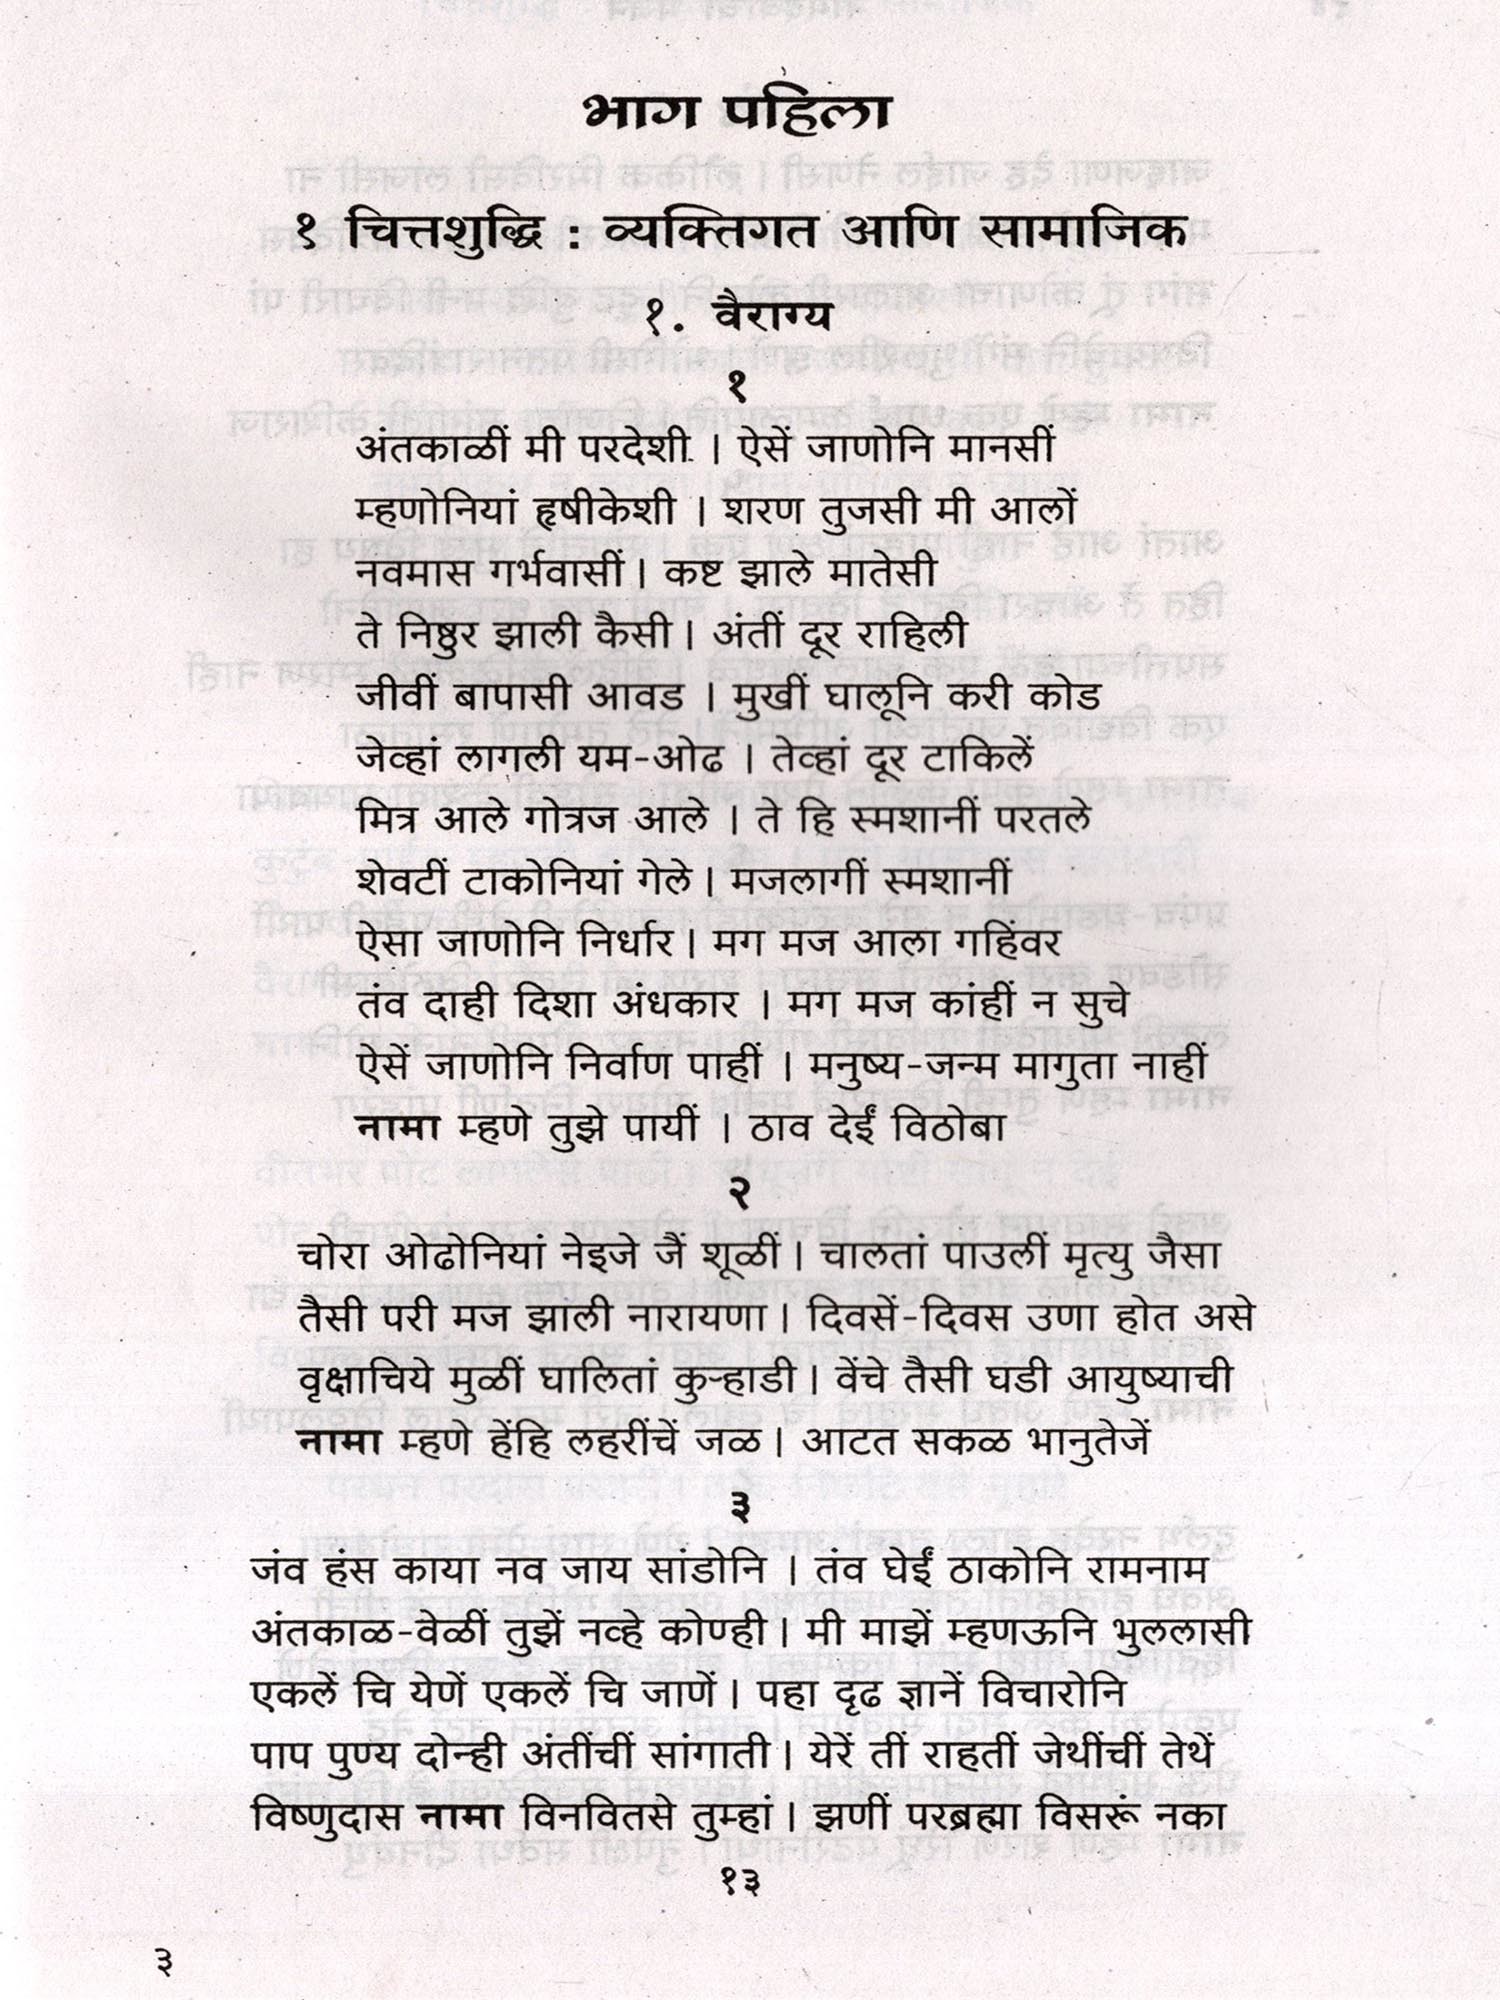 भाग पहिला
१ चित्तशुद्धि : व्यक्तिगत आणि सामाजिक
१. वैराग्य
१
अंतकाळीं मी परदेशी । ऐसें जाणोनि मानसीं
म्हणोनियां हृषीकेशी । शरण तुजसी मी आलों
नवमास गर्भवासीं । कष्ट झाले मातेसी
ते निष्ठुर झाली कैसी । अंतीं दूर राहिली
जीवीं बापासी आवड । मुखीं घालूनि करी कोड
जेव्हां लागली यम-ओढ । तेव्हां दूर टाकिलें
मित्र आले गोत्रज आले । ते हि स्मशानीं परतले
शेवटीं टाकोनियां गेले । मजलागीं स्मशानीं
ऐसा जाणोनि निर्धार । मग मज आला गहिंवर
तंव दाही दिशा अंधकार । मग मज कांहीं न सुचे
ऐसें जाणोनि निर्वाण पाहीं । मनुष्य-जन्म मागुता नाहीं
नामा म्हणे तुझे पायीं । ठाव देईं विठोबा
२
चोरा ओढोनियां नेइजे जैं शूळीं । चालतां पाउलीं मृत्यु जैसा
तैसी परी मज झाली नारायणा । दिवसें-दिवस उणा होत असे
वृक्षाचिये मुळीं घालितां कुऱ्हाडी । वेंचे तैसी घडी आयुष्याची
नामा म्हणे हेंहि लहरींचें जळ । आटत सकळ भानुतेजें
३
जंव हंस काया नव जाय सांडोनि । तंव घेईं ठाकोनि रामनाम
अंतकाळ-वेळीं तुझें नव्हे कोण्ही । मी माझें म्हणऊनि भुललासी
एकलें चि येणें एकलें चि जाणें । पहा दृढ ज्ञानें विचारोनि
पाप पुण्य दोन्ही अंतींचीं सांगाती । येरें तीं राहतीं जेथींचीं तेथें
विष्णुदास नामा विनवितसे तुम्हां । झणीं परब्रह्मा विसरूं नका
१३
३